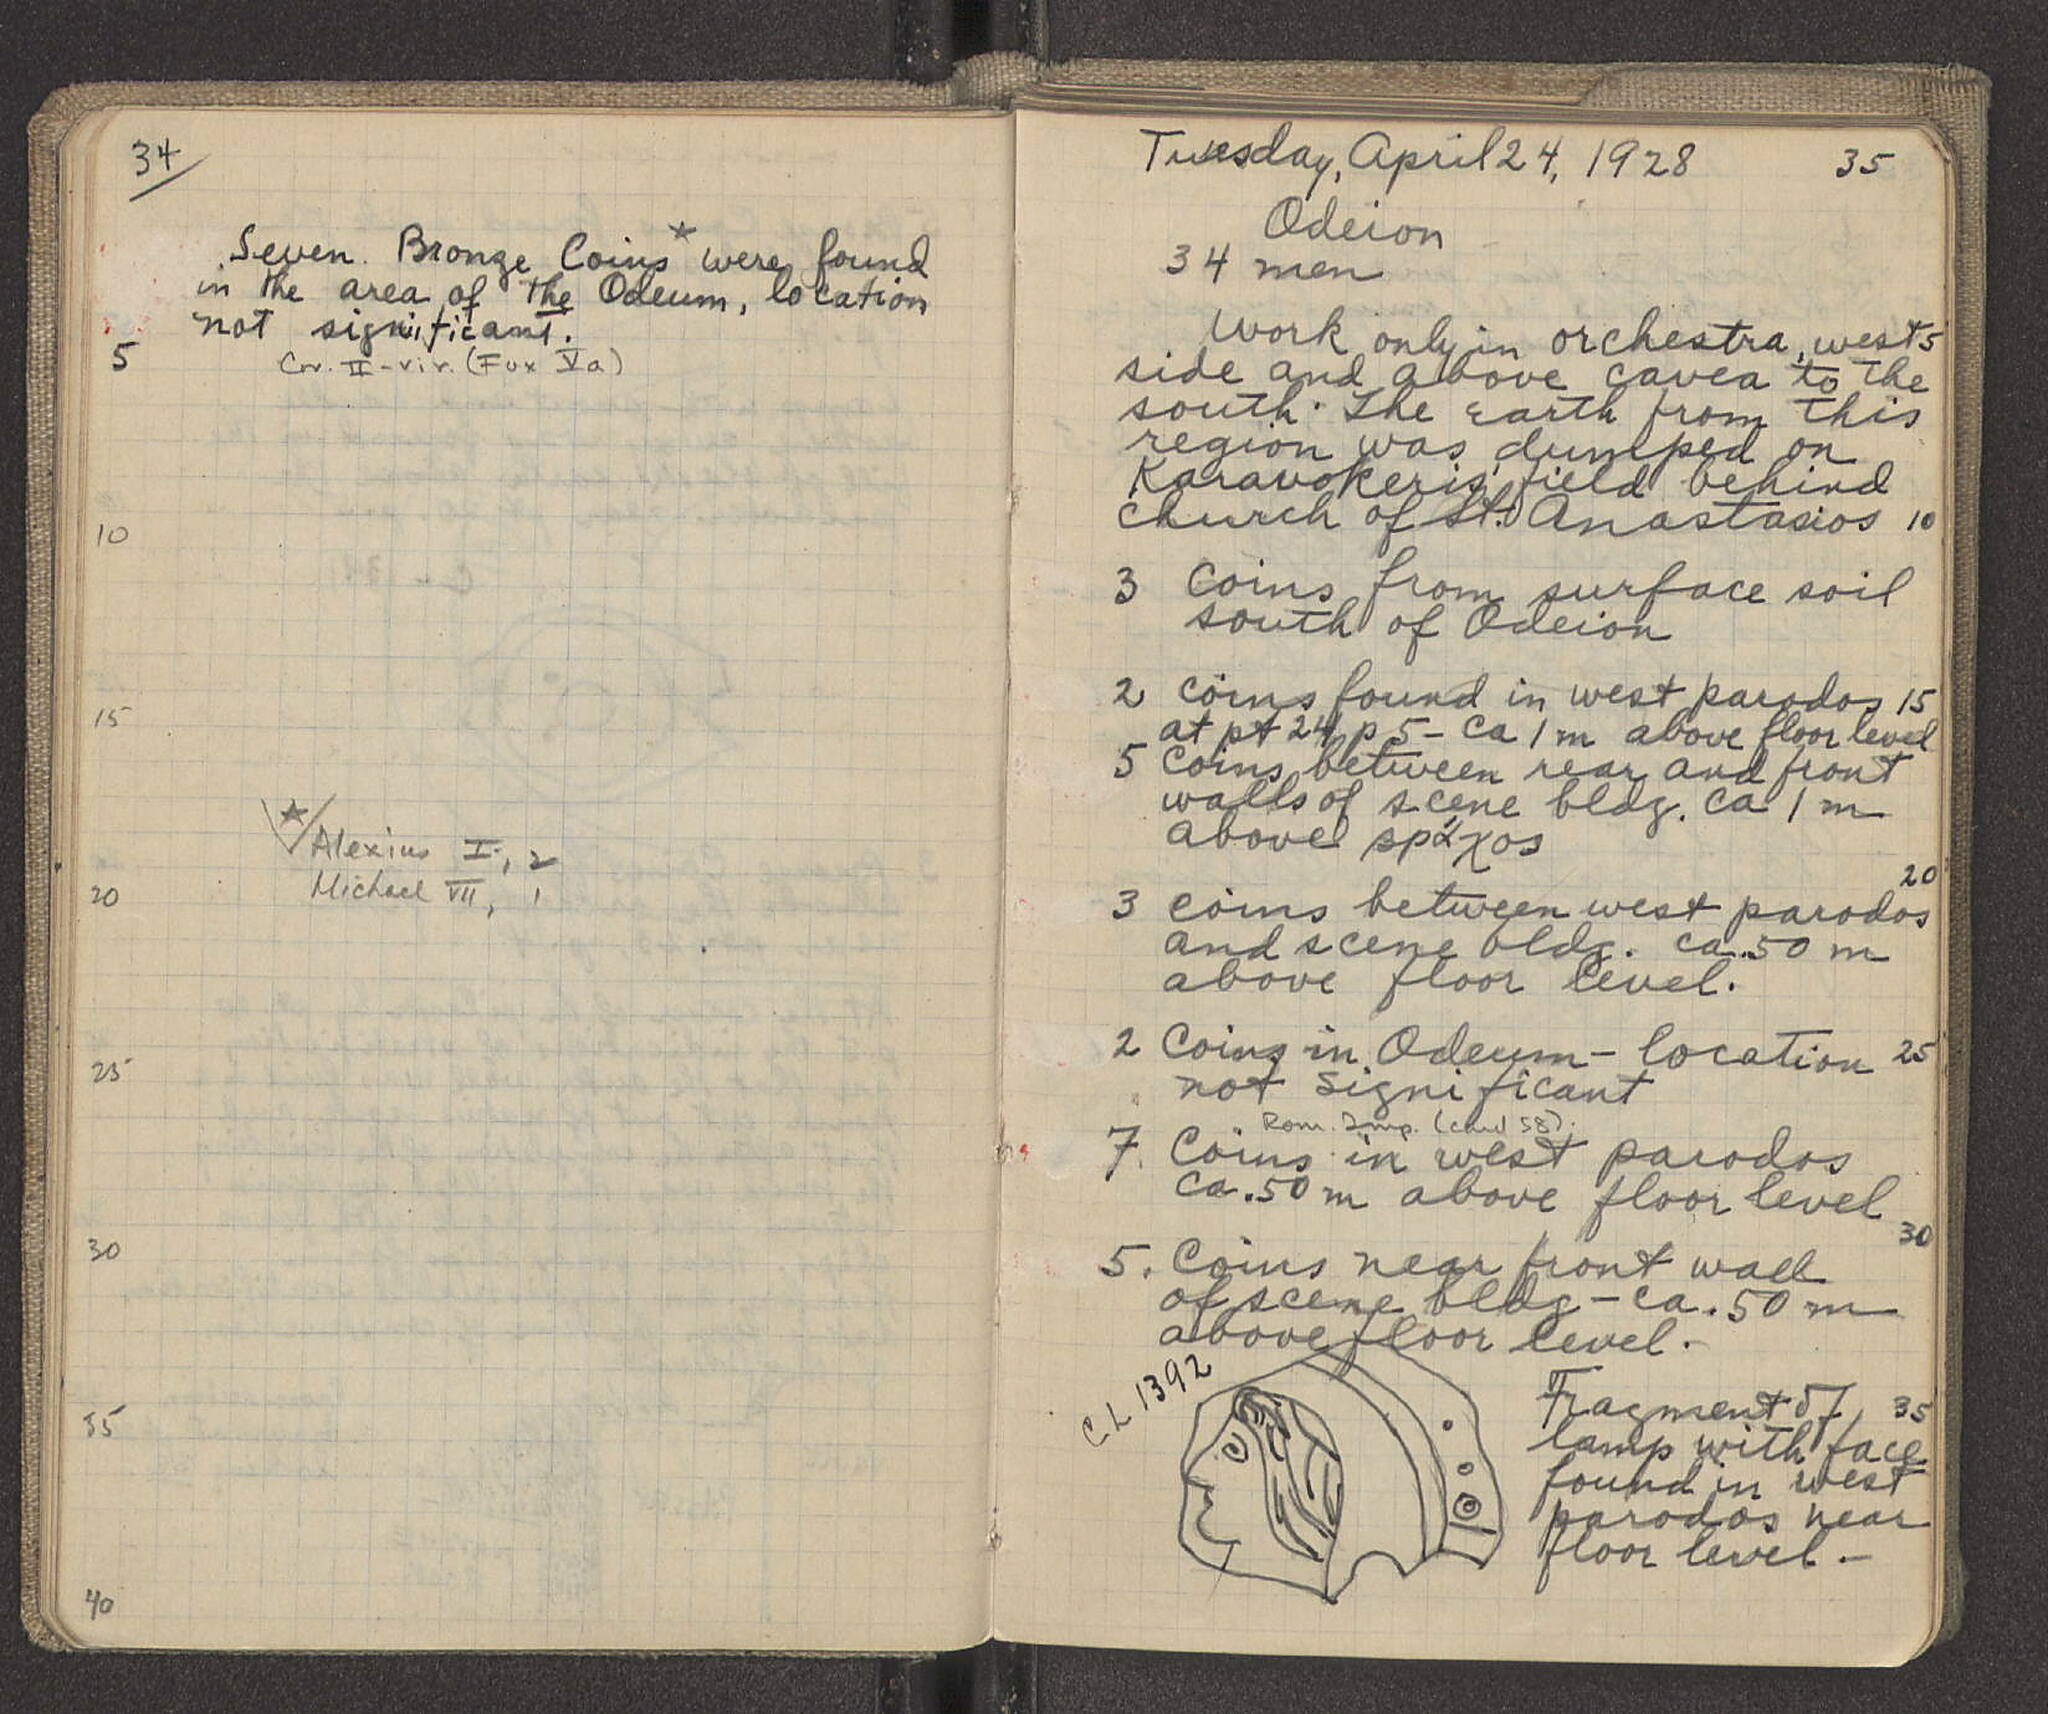 34
Seven Bronze Coins★ were found
in the area of the Odeum, location
not significant.
5
Cor. II-vir. (Fox Va)
10
15
★
Alexius I, 2
Michael VII, 1
20
25
30
35
40
Tuesday, April 24, 1928 35
Odeion
34 men
Work only in orchestra, west 5
side and above cavea to the
south. The earth from this
region was dumped on
Karavokeris' field behind
church of St. Anastasios 10
3 Coins from surface soil
south of Odeion
2 coins found in west parodos 15
at pt 24 p 5 - ca 1 m above floor level
5 Coins between rear and front
walls of scene bldg. ca 1 m
above
20
3 coins between west parodos
and scene bldg. ca .50 m
above floor level.
2 Coins in Odeum - location 25
not significant
Rom. Imp. (cmd 58).
7. Coins in west parodos
ca .50 m above floor level
30
5. Coins near front wall
of scene bldg - ca .50 m
above floor level. -
C.L 1392
Fragment of 35
lamp with face
found in west
parodos near
floor level. -